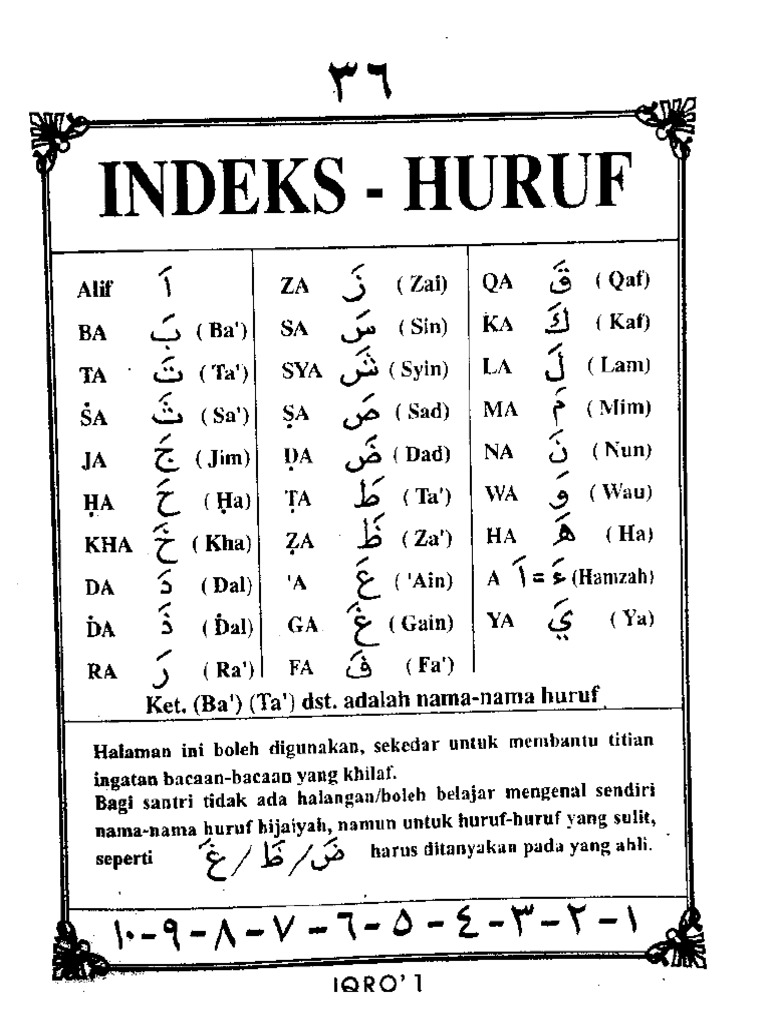 ٣٦
INDEKS - HURUF
Alif اَ
BA بَ (Ba')
TA تَ (Ta')
ṠA ثَ (Sa')
JA جَ (Jim)
ḤA حَ (Ḥa)
KHA خَ (Kha)
DA دَ (Dal)
ḊA ذَ (Ḋal)
RA رَ (Ra')
ZA زَ (Zai)
SA سَ (Sin)
SYA شَ (Syin)
ṢA صَ (Sad)
ḌA ضَ (Dad)
ṬA طَ (Ta')
ẒA ظَ (Za')
'A عَ ('Ain)
GA غَ (Gain)
FA فَ (Fa')
QA قَ (Qaf)
KA كَ (Kaf)
LA لَ (Lam)
MA مَ (Mim)
NA نَ (Nun)
WA وَ (Wau)
HA هَ (Ha)
A اَ = ءَ (Hamzah)
YA يَ (Ya)
Ket. (Ba') (Ta') dst. adalah nama-nama huruf
Halaman ini boleh digunakan, sekedar untuk membantu titian
ingatan bacaan-bacaan yang khilaf.
Bagi santri tidak ada halangan/boleh belajar mengenal sendiri
nama-nama huruf hijaiyah, namun untuk huruf-huruf yang sulit,
seperti ضَ / ظَ / غَ harus ditanyakan pada yang ahli.
١ - ٢ - ٣ - ٤ - ٥ - ٦ - ٧ - ٨ - ٩ - ١٠
IQRO' 1